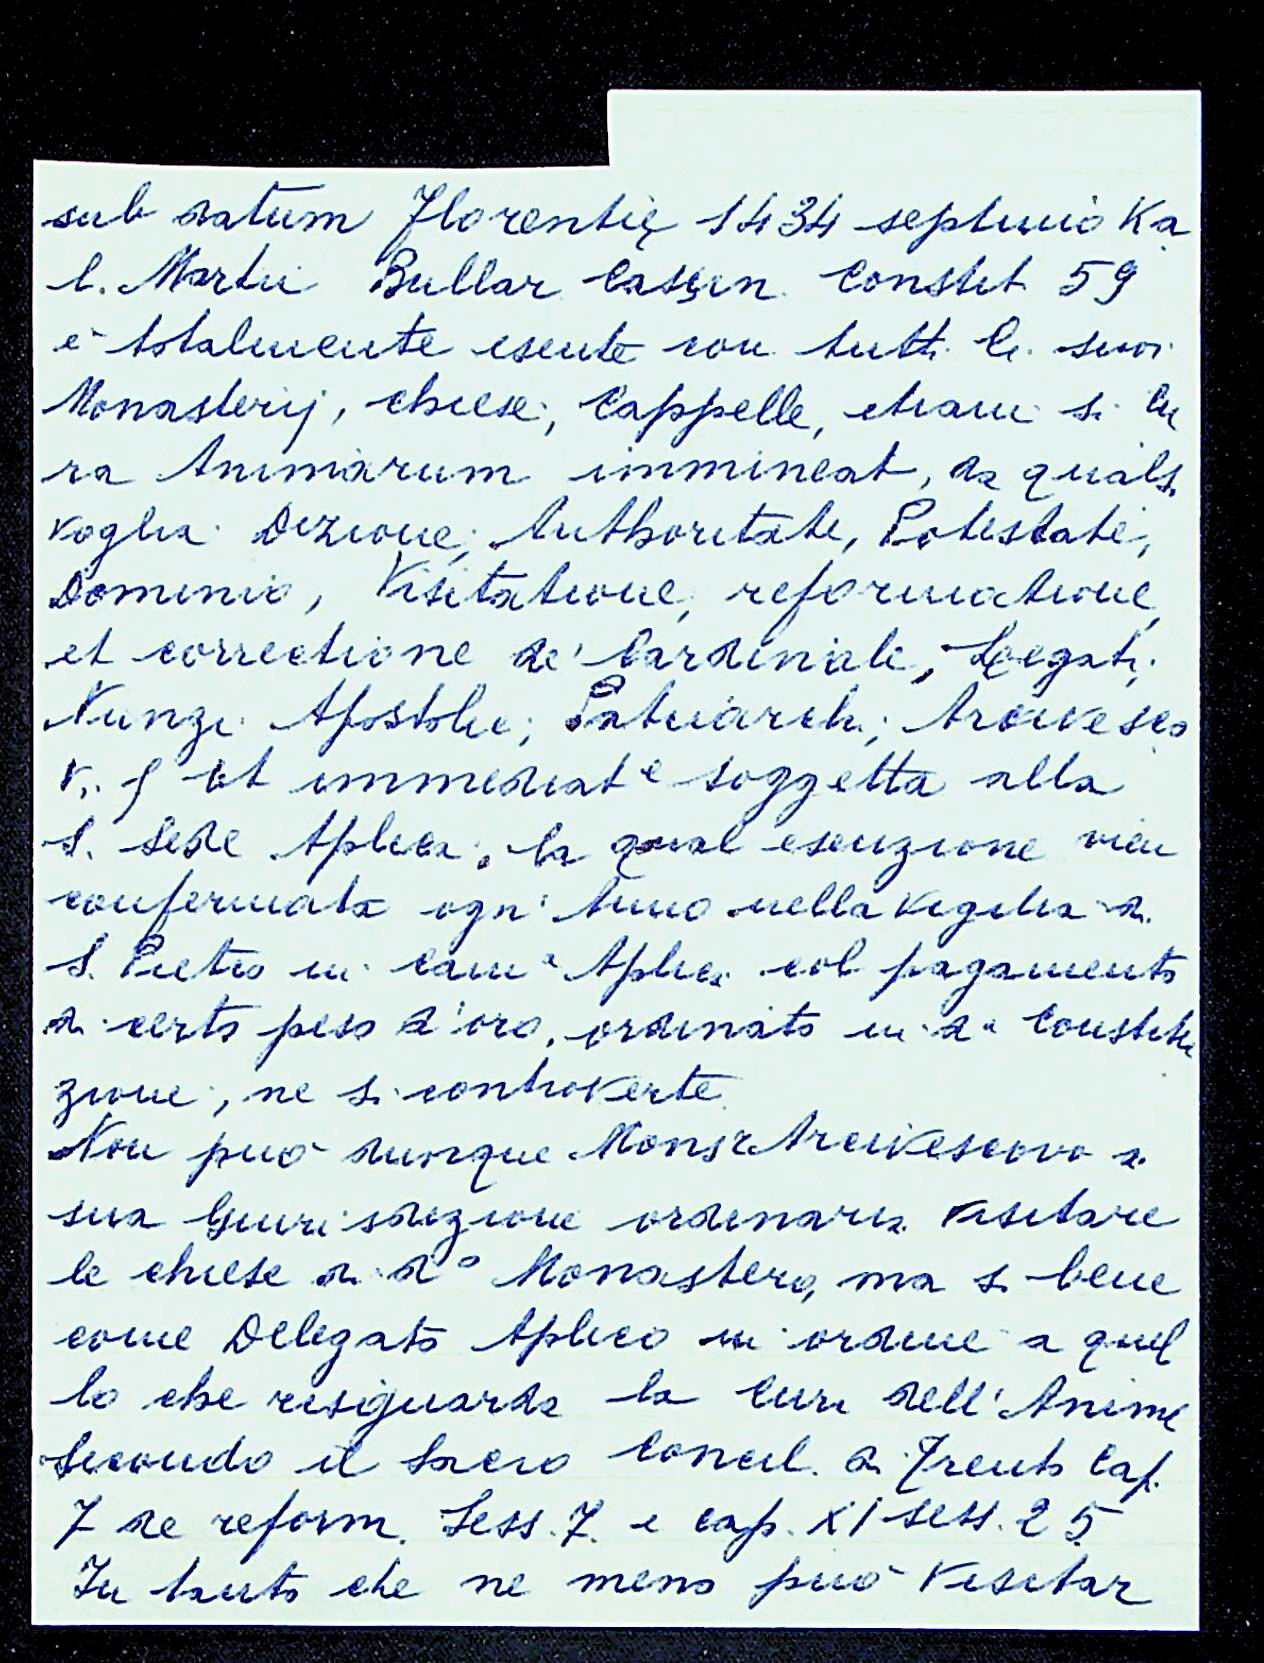 sub datum Florentię 1434 septimo Ka
l. Martii Bullar Casin. Constit 59
è totalmente esente con tutti li suoi
Monasterij, chiese, Cappelle, etiam si Cu
ra Animarum immineat, da qualsi
voglia Dizione, Authoritate, Potestate,
Dominio, Visitatione, reformatione,
et correctione de' Cardinale, Legati,
Nunzi Apostolici; Patriarchi; Arcivesco
vi. et immediat e soggetta alla
S. Sede Aplica, la qual esenzione vien
confermata ogn' Anno nella vigilia di
S. Pietro in Cam a Aplica col pagamento
di certo peso d'oro, ordinato in da Constitu
zione, ne si controverte
Non può dunque Monsr Arcivescovo di
sua Giurisdizione ordinaria visitare
le chiese di do Monastero, ma si bene
come Delegato Aplico in ordine a quel
lo che risiguarda la Cura dell'Anime
secondo il Sacro Concil. di Trento Cap.
7 de reform. Sess. 7. e cap. XI sess. 25
In tanto che ne meno può visitar